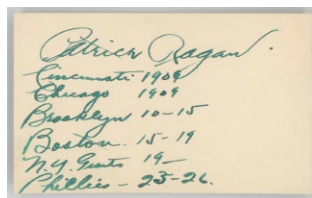 Patrick Ragan.
Cincinnati 1909
Chicago 1909
Brooklyn 10-15
Boston. 15-19
N.Y. Giants 19-
Phillies - 23-26.